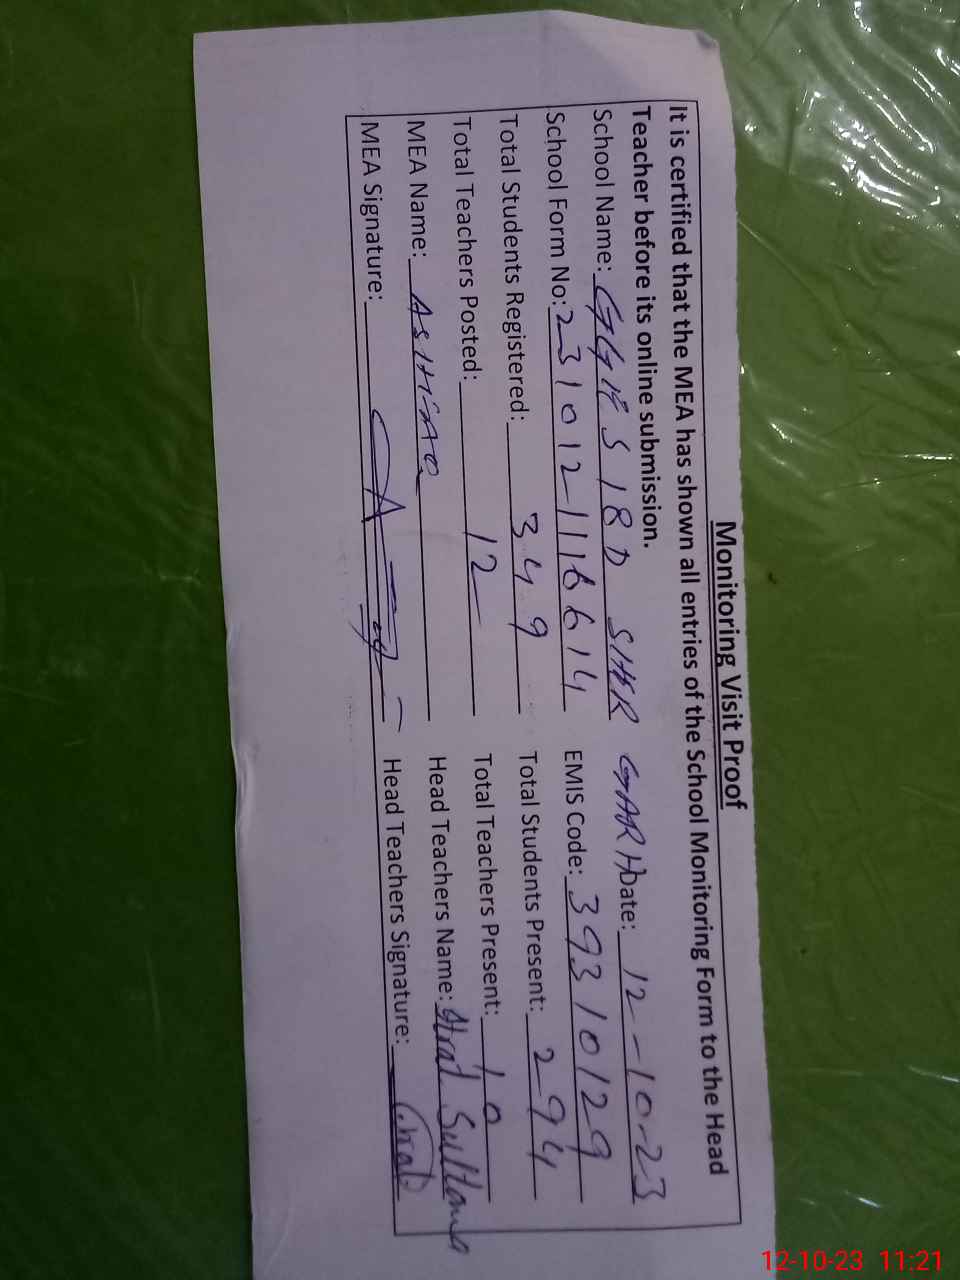 Monitoring Visit Proof
It is certified that the MEA has shown all entries of the School Monitoring Form to the Head
Teacher before its online submission.
School Name: GGHS 18D SHER GARH Date: 12-10-23
School Form No: 2310121116614 EMIS Code: 39310129
Total Students Registered: 349 Total Students Present: 294
Total Teachers Posted: 12 Total Teachers Present: 10
MEA Name: Head Teachers Name: Sultana
MEA Signature: Head Teachers Signature:
12-10-23 11:21